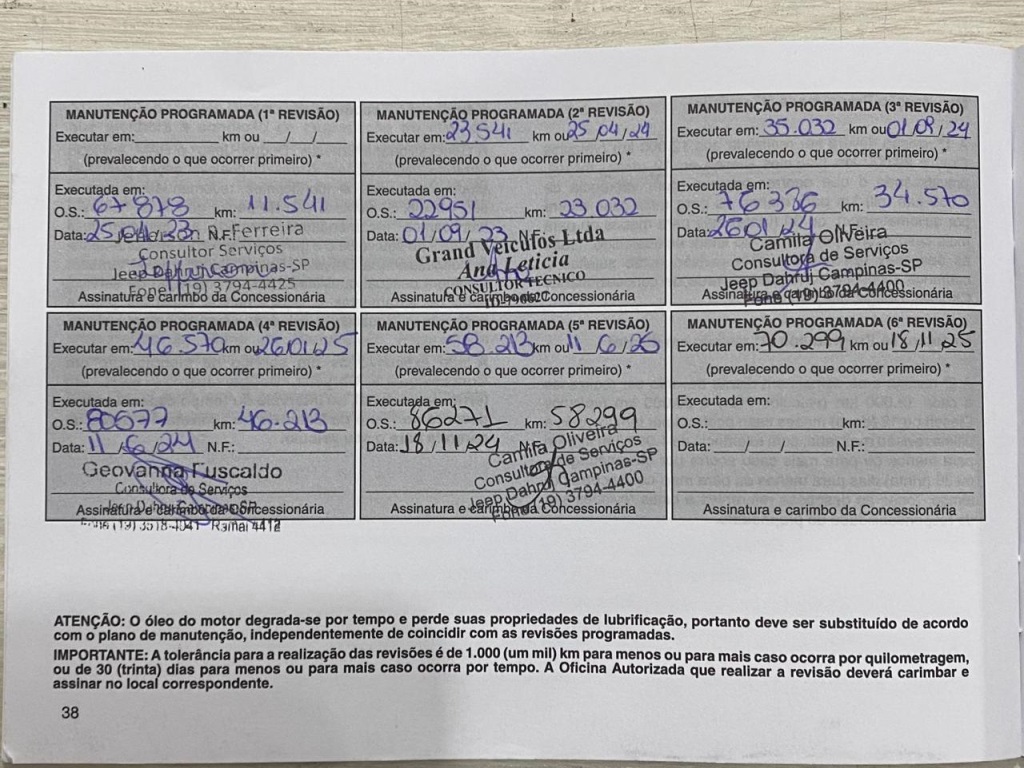 MANUTENÇÃO PROGRAMADA (1ª REVISÃO)
Executar em: km ou / /
(prevalecendo o que ocorrer primeiro) *
Executada em:
O.S.: 67878 km: 11.541
Data: 25/04/23 N.F. Ferreira
Consultor Serviços
Jeep Dahruj Campinas-SP
Fone: (19) 3794-4425
Assinatura e carimbo da Concessionária
MANUTENÇÃO PROGRAMADA (2ª REVISÃO)
Executar em: 23.541 km ou 25/04/24
(prevalecendo o que ocorrer primeiro) *
Executada em:
O.S.: 22951 km: 23.032
Data: 01/09/23 N.F.:
Grand Veículos Ltda
Ana Leticia
CONSULTOR TECNICO
Assinatura e carimbo da Concessionária
MANUTENÇÃO PROGRAMADA (3ª REVISÃO)
Executar em: 35.032 km ou 01/09/24
(prevalecendo o que ocorrer primeiro) *
Executada em:
O.S.: 76386 km: 34.570
Data: 26/01/24
Camila Oliveira
Consultora de Serviços
Jeep Dahruj Campinas-SP
Fone: (19) 3794-4400
Assinatura e carimbo da Concessionária
MANUTENÇÃO PROGRAMADA (4ª REVISÃO)
Executar em: 46.570 km ou 26/01/25
(prevalecendo o que ocorrer primeiro) *
Executada em:
O.S.: 80577 km: 46.213
Data: 11/6/24 N.F.:
Geovanna Fuscaldo
Consultora de Serviços
Jeep Dahruj Campinas-SP
Assinatura e carimbo da Concessionária
Fone (19) 3518-4041 Ramal 4412
MANUTENÇÃO PROGRAMADA (5ª REVISÃO)
Executar em: 58.213 km ou 11/6/25
(prevalecendo o que ocorrer primeiro) *
Executada em:
O.S.: 86271 km: 58299
Data: 18/11/24 N.F.:
Camila Oliveira
Consultora de Serviços
Jeep Dahruj Campinas-SP
Fone: (19) 3794-4400
Assinatura e carimbo da Concessionária
MANUTENÇÃO PROGRAMADA (6ª REVISÃO)
Executar em: 70.299 km ou 18/11/25
(prevalecendo o que ocorrer primeiro) *
Executada em:
O.S.: km:
Data: / / N.F.:
Assinatura e carimbo da Concessionária
ATENÇÃO: O óleo do motor degrada-se por tempo e perde suas propriedades de lubrificação, portanto deve ser substituído de acordo
com o plano de manutenção, independentemente de coincidir com as revisões programadas.
IMPORTANTE: A tolerância para a realização das revisões é de 1.000 (um mil) km para menos ou para mais caso ocorra por quilometragem,
ou de 30 (trinta) dias para menos ou para mais caso ocorra por tempo. A Oficina Autorizada que realizar a revisão deverá carimbar e
assinar no local correspondente.
38